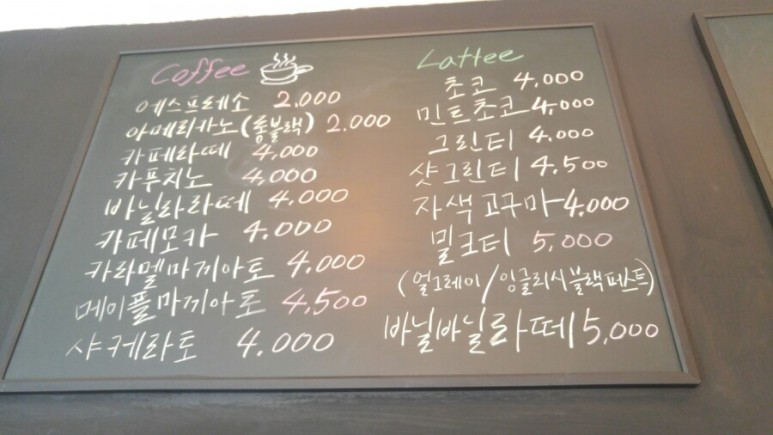 Coffee
에스프레소 2,000
아메리카노(롱블랙) 2,000
카페라떼 4,000
카푸치노 4,000
바닐라라떼 4,000
카페모카 4.000
카라멜마끼아토 4,000
메이플마끼아토 4,500
샤케라토 4.000
Lattee
초코 4,000
민트초코 4,000
그린티 4,000
샷그린티 4,500
자색고구마 4,000
밀크티 5,000
(얼그레이/잉글리시블랙퍼스트)
바닐바닐라떼 5,000